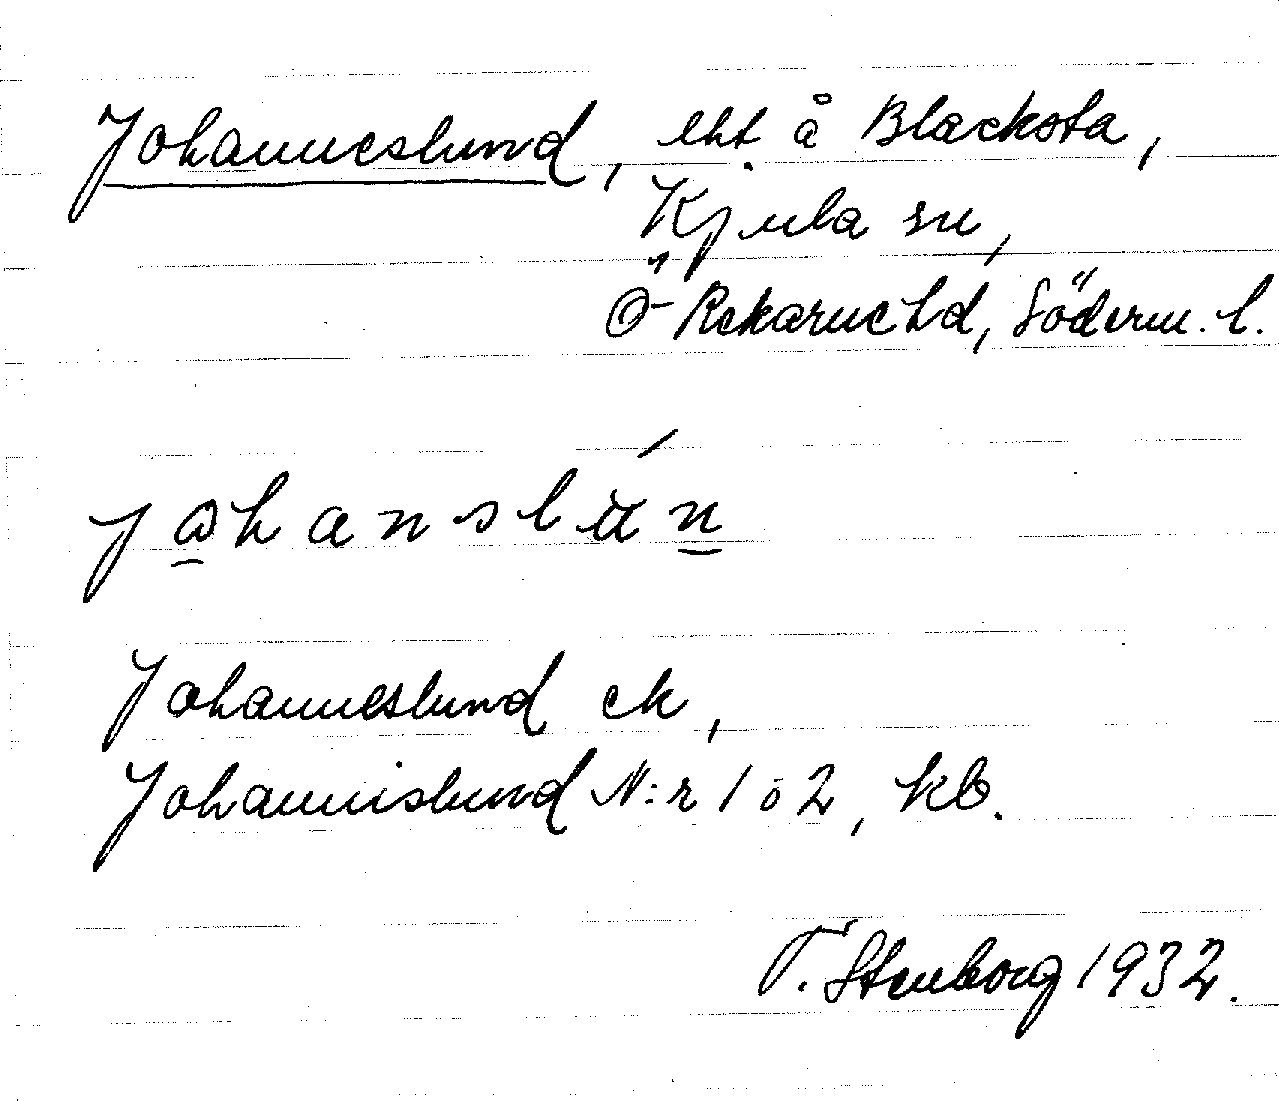 Johanneslund, lht å Blacksta,
Kjula sn,
Ö Rekarne hd, Söderm. l.
johanslún
Johanneslund ek,
Johannislund N:r 1 o 2, kb.
T. Stenborg 1932.